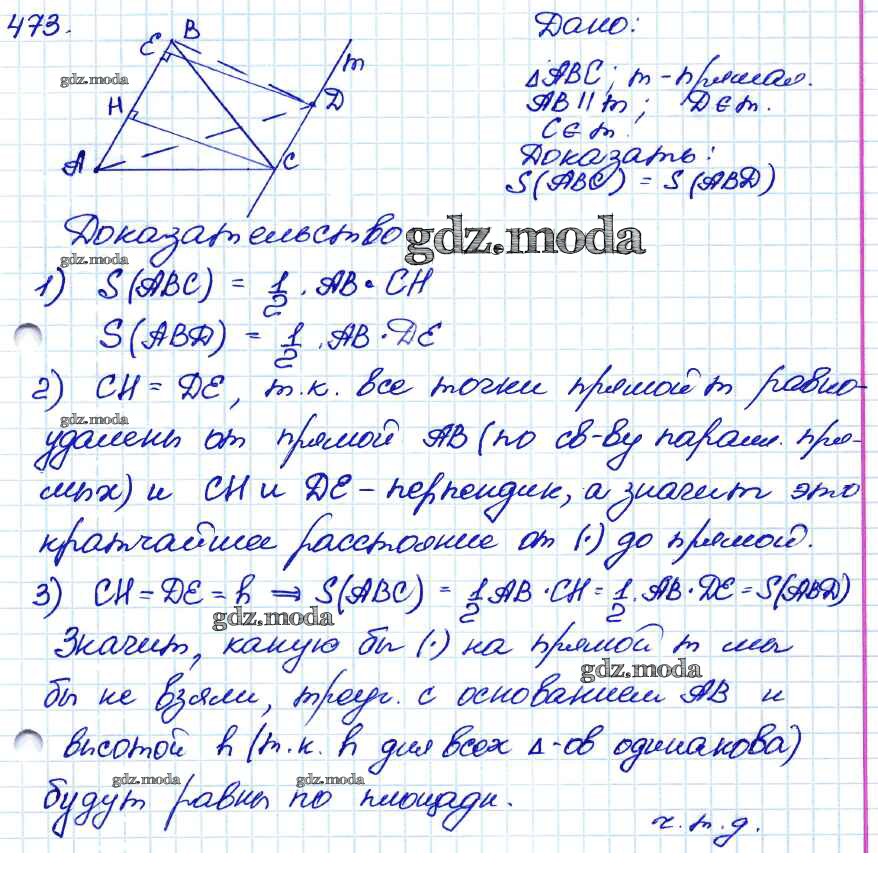 473.
B
E
m
gdz.moda
H
D
A
C
Дано:
△ABC; m - прямая.
AB || m; D ∈ m.
C ∈ m.
Доказать:
S(ABC) = S(ABD)
Доказательство
gdz.moda
gdz.moda
1) S(ABC) = 1/2 · AB · CH
S(ABD) = 1/2 · AB · DE
2) CH = DE, т.к. все точки прямой m равно-
gdz.moda
удалены от прямой AB (по св-ву паралл. пря-
мых) и CH и DE - перпендик, а значит это
кратчайшее расстояние от (·) до прямой.
3) CH = DE = h ⇒ S(ABC) = 1/2 AB · CH = 1/2 · AB · DE = S(ABD)
gdz.moda
Значит, какую бы (·) на прямой m мы
gdz.moda
бы не взяли, треуг. с основанием AB и
высотой h (т.к. h для всех △-ов одинакова)
gdz.moda
gdz.moda
будут равны по площади.
ч.т.д.